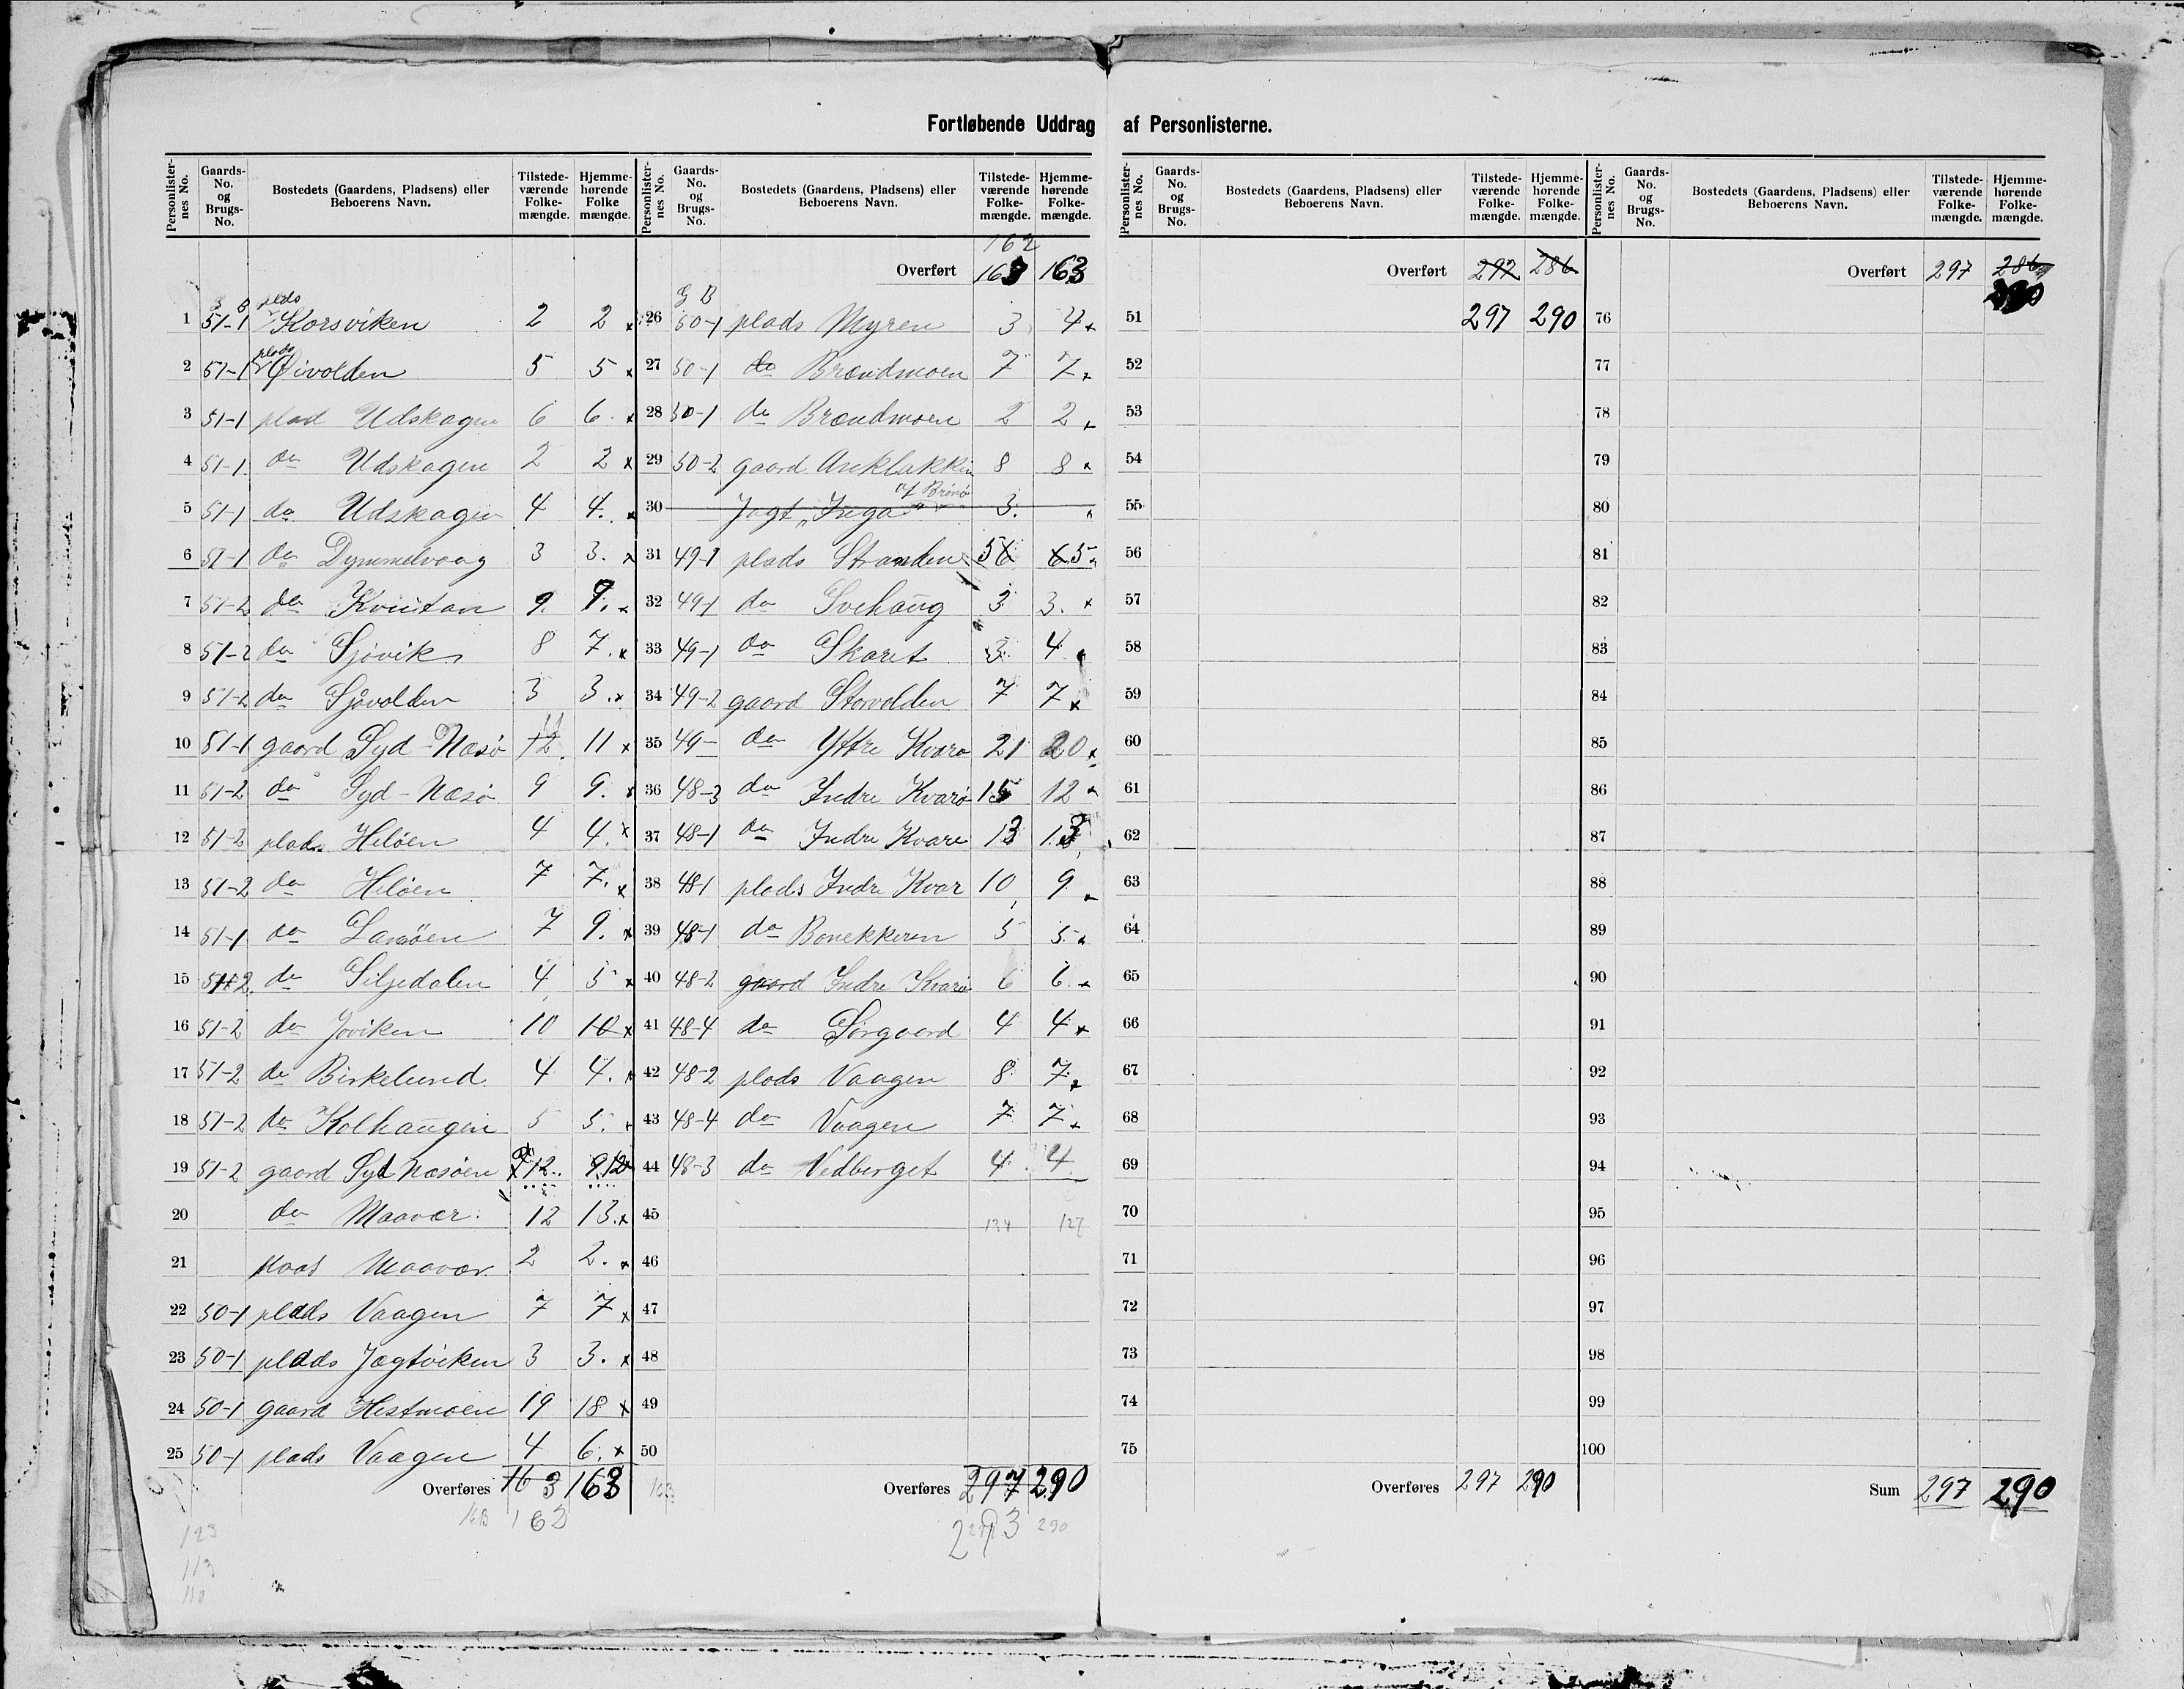 Fortløbende Uddrag af Personlisterne.
Personlister-nes No. Gaards-No. og Brugs-No. Bostedets (Gaardens, Pladsens) eller Beboerens Navn. Tilstede-værende Folke-mængde. Hjemme-hørende Folke mængde.
1 51-1 plds Korsviken 2 2 x
2 51-1 plads Øivolden 5 5 x
3 51-1 plad Udskagen 6 6 x
4 51-1 do Udskagen 2 2 x
5 51-1 do Udskagen 4 4. x
6 51-1 do Dymmelvaag 3 3. x
7 51-2 do Kvitan 9. 9. x
8 51-2 do Sjövik 8 7. x
9 51-2 do Sjøvolden 3 3. x
10 51-1 gaard Syd-Næsö 12 11 11 x
11 51-2 do Syd-Næsö 9 9. x
12 51-2 plads Hilöen 4 4. x
13 51-2 do Hilöen 7 7. x
14 51-1 do 7 9. x
15 51-2 do Siljedalen 4 5 x
16 51-2 do Joviken 10 10 x
17 51-2 do Birkelund 4 4. x
18 51-2 do Kolhaugen 5 5. x
19 51-2 gaard Syd Næsöen 12. 9 12 x
20 do Maavær. 12 13. x
21 plads Maavær. 2 2. x
22 50-1 plads Vaagen 7 7 x
23 50-1 plads Jægtviken 3 3. x
24 50-1 gaard Hestmoen 19 18 x
25 50-1 plads Vaagen 4 6. x
Overføres 163 163
163 162
123
113
110
Personlister-nes No. Gaards-No. og Brugs-No. Bostedets (Gaardens, Pladsens) eller Beboerens Navn. Tilstede-værende Folke-mængde. Hjemme-hørende Folke-mængde.
162
Overført 163 163
G B
26 50-1 plads Myren 3 4 x
27 50-1 do Brændmoen 7 7 x
28 50-1 do Brændmoen 2 2 x
29 50-2 gaard 8 8 x
30 Jagt "Inga" af Brönö 3. x
31 49-1 plads Stranden 5 6 6 5 x
32 49-1 do Svehaug 3 3. x
33 49-1 do Skaret 3 4 x
34 49-2 gaard Storvolden 7 7 x
35 49- do Yttre Kvarø 21 20 x
36 48-3 do Indre Kvarö 15 12 x
37 48-1 do Indre Kvarø 13 13
38 48 1 plads Indre Kvar 10 9
39 48-1 do Bonekkeren 5 5. x
40 48-2 gaard Indre Kvarö 6 6 x
41 48-4 do Sörgaard 4 4 x
42 48-2 plads Vaagen 8 7 x
43 48-4 do Vaagen 7 7 x
44 48-3 do Vedberget 4 4
45 134 127
46
47
48
49
50
Overføres 297 290
293 290
Personlister-nes No. Gaards-No. og Brugs-No. Bostedets (Gaardens, Pladsens) eller Beboerens Navn. Tilstede-værende Folke-mængde. Hjemme-hørende Folke-mængde.
Overført 292 286
51 297 290
52
53
54
55
56
57
58
59
60
61
62
63
64
65
66
67
68
69
70
71
72
73
74
75
Overføres 297 290
Personlister-nes No. Gaards-No. og Brugs-No. Bostedets (Gaardens, Pladsens) eller Beboerens Navn. Tilstede-værende Folke-mængde. Hjemme-hørende Folke-mængde.
Overført 297 286
76
77
78
79
80
81
82
83
84
85
86
87
88
89
90
91
92
93
94
95
96
97
98
99
100
Sum 297 290